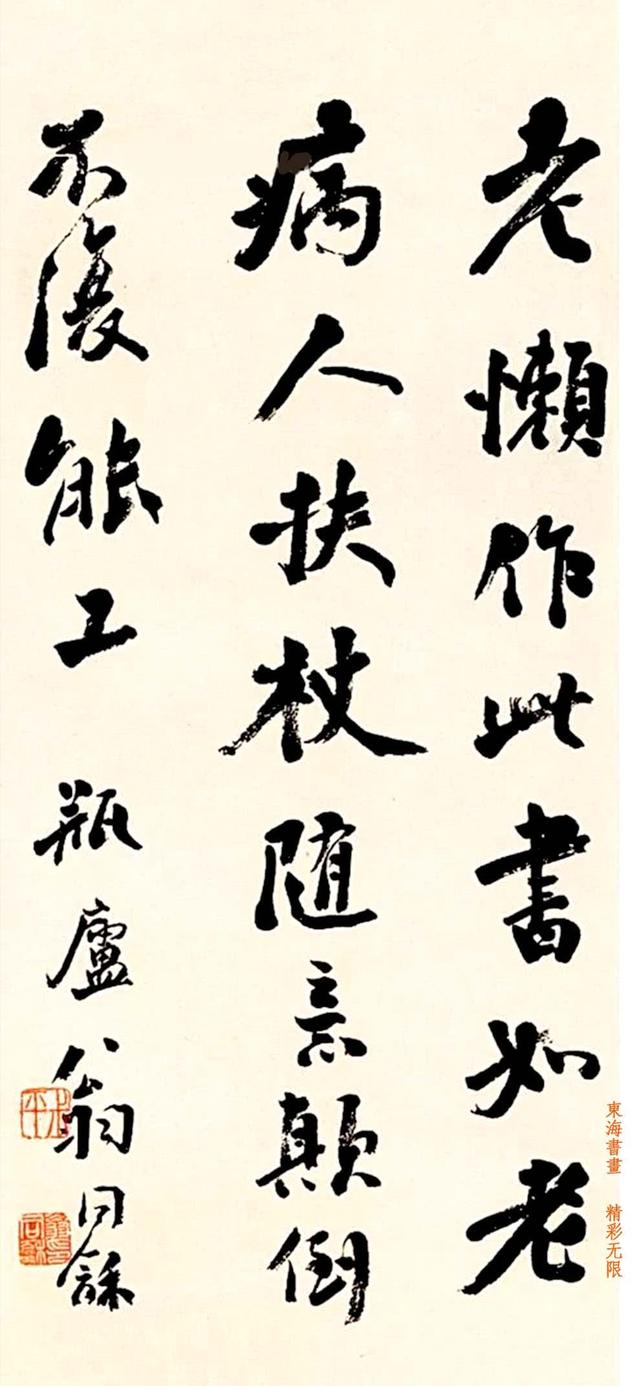 老懶作此書如老
病人扶杖随意顛倒
不復能工 瓶廬翁同龢
叔平
翁同龢印
東海書畫 精彩无限